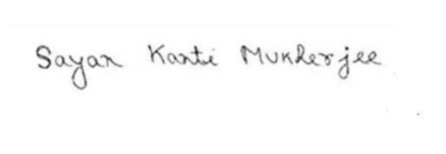 Sayan Kanti Mukherjee